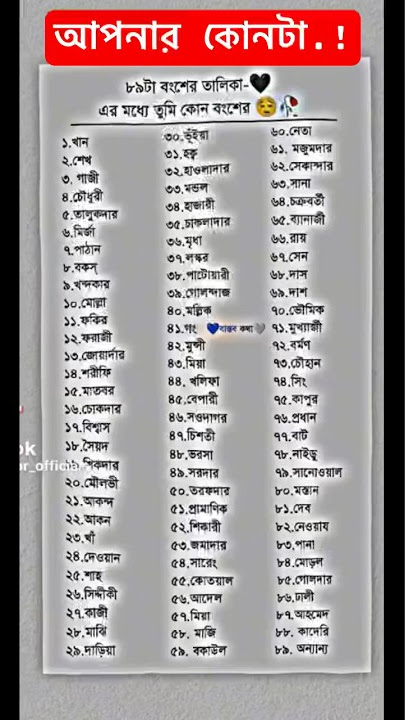 আপনার কোনটা.!
৮৯টা বংশের তালিকা-🖤
এর মধ্যে তুমি কোন বংশের 😌🥀
১.খান
২.শেখ
৩. গাজী
৪.চৌধুরী
৫.তালুকদার
৬.মির্জা
৭.পাঠান
৮.বকস্
৯.খন্দকার
১০.মোল্লা
১১.ফকির
১২.ফরাজী
১৩.জোয়ার্দার
১৪.শরীফি
১৫.মাতবর
১৬.চোকদার
১৭.বিশ্বাস
১৮.সৈয়দ
১৯.শিকদার
২০.মৌলভী
২১.আকন্দ
২২.আকন
২৩.খাঁ
২৪.দেওয়ান
২৫.শাহ
২৬.সিদ্দীকী
২৭.কাজী
২৮.মাঝি
২৯.দাড়িয়া
৩০.ভূঁইয়া
৩১.হক্ব
৩২.হাওলাদার
৩৩.মন্ডল
৩৪.হাজারী
৩৫.চাকলাদার
৩৬.মৃধা
৩৭.লস্কর
৩৮.পাটোয়ারী
৩৯.গোলন্দাজ
৪০.মল্লিক
৪১.গং 💙বাস্তব কথা🤍
৪২.মুন্সী
৪৩.মিয়া
৪৪. খলিফা
৪৫.বেপারী
৪৬.সওদাগর
৪৭.চিশতী
৪৮.ভরসা
৪৯.সরদার
৫০.তরফদার
৫১.প্রামাণিক
৫২.শিকারী
৫৩.জমাদার
৫৪.সারেং
৫৫.কোতয়াল
৫৬.আদেল
৫৭.মিয়া
৫৮. মাজি
৫৯. বকাউল
৬০.নেতা
৬১. মজুমদার
৬২.সেকান্দার
৬৩.সানা
৬৪.চক্রবর্তী
৬৫.ব্যানার্জী
৬৬.রায়
৬৭.সেন
৬৮.দাস
৬৯.দাশ
৭০.ভৌমিক
৭১.মুখ্যার্জী
৭২.বর্মণ
৭৩.চৌহান
৭৪.সিং
৭৫.কাপুর
৭৬.প্রধান
৭৭.বাট
৭৮.নাইডু
৭৯.সানোওয়াল
৮০.মস্তান
৮১.দেব
৮২.নেওয়ায
৮৩.পানা
৮৪.মোড়ল
৮৫.গোলদার
৮৬.ঢালী
৮৭.আহমেদ
৮৮. কাদেরি
৮৯. অন্যান্য